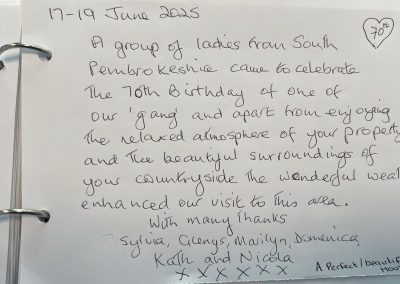 17-19 June 2025
70th
A group of ladies from South
Pembrokeshire came to celebrate
The 70th Birthday of one of
our 'gang' and apart from enjoying
the relaxed atmosphere of your property
and the beautiful surroundings of
your countryside the wonderful weat
enhanced our visit to this area.
With many Thanks
Sylvia, Glenys, Marilyn, Domenica,
Kath and Nicola
X X X X X X
A Perfect/beautif
Hou